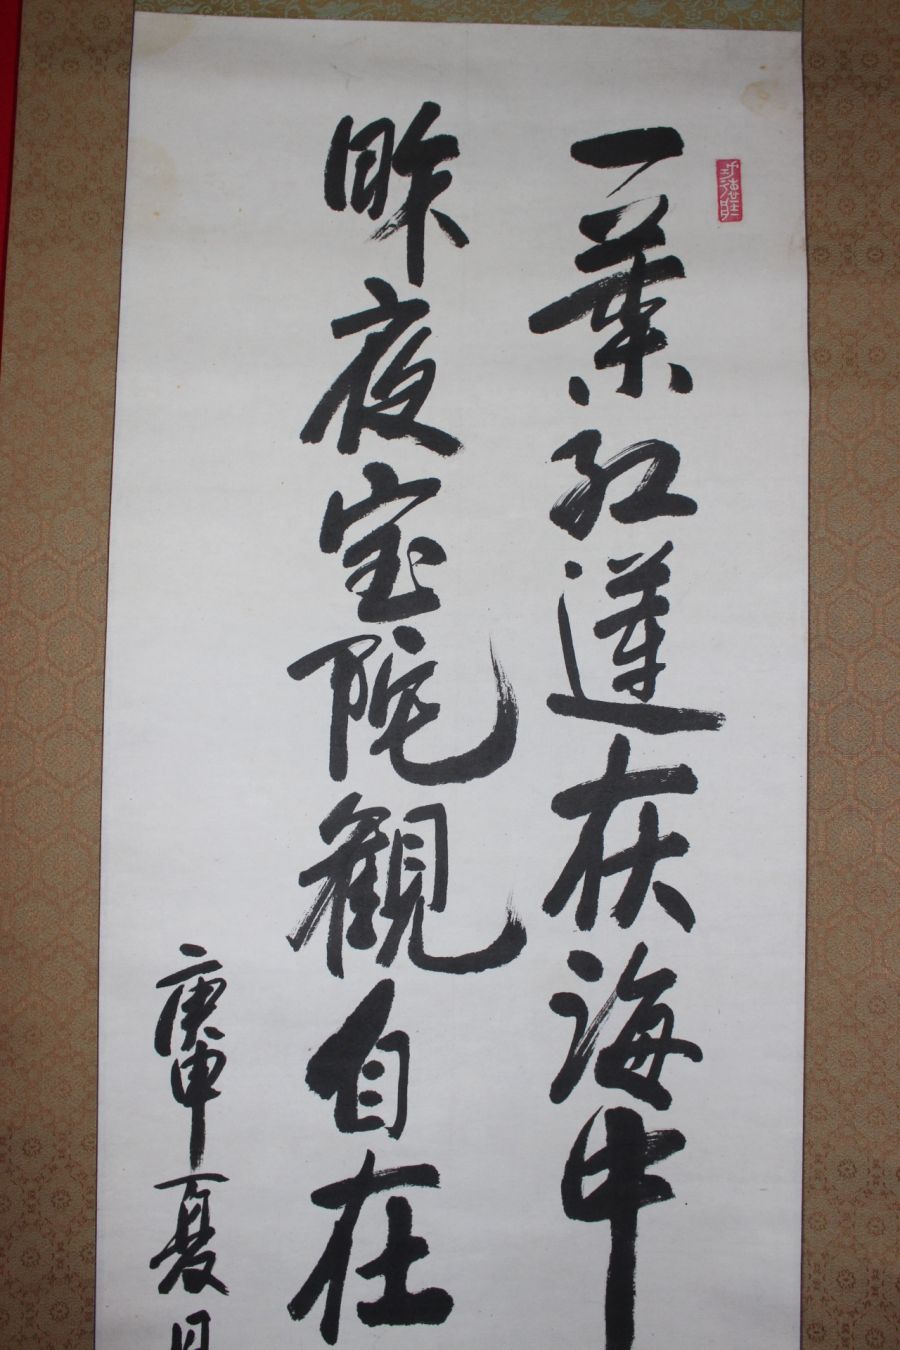 一葉紅蓮在海中
昨夜宝陀観自在
庚申夏日